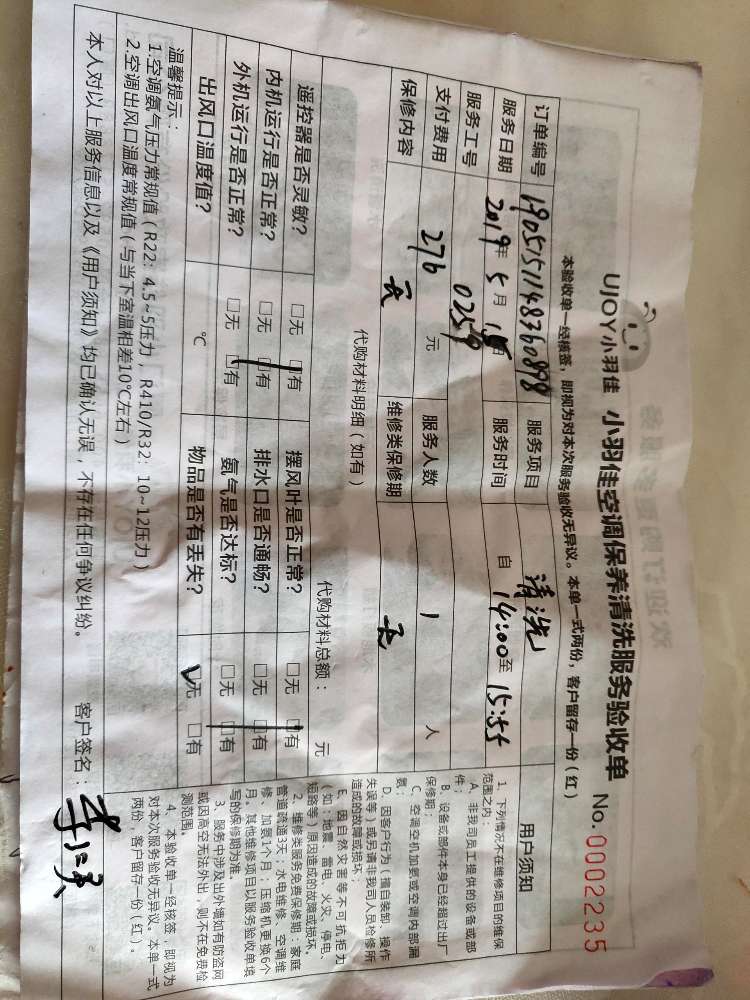 UJOY小羽佳 小羽佳空调保养清洗服务验收单 No.0002235
本验收单一经核签，即视为对本次服务验收无异议。本单一式两份，客户留存一份（红）
订单编号 1905151148360898 服务项目 清洗
服务日期 2019年5月15日 服务时间 自14:00至15:55
服务工号 0259
支付费用 276元 服务人数 1人
保修内容 无 维修类保修期 无
代购材料明细（如有） 代购材料总额： 元
遥控器是否灵敏？ □无 □有 摆风叶是否正常？ □无 □有
内机运行是否正常？ □无 □有 排水口是否通畅？ □无 □有
外机运行是否正常？ □无 □有 氨气是否达标？ □无 □有
出风口温度值？ ℃ 物品是否有丢失？ ☑无 □有
温馨提示：
1.空调氨气压力常规值（R22：4.5~5压力，R410/R32：10~12压力）
2.空调出风口温度常规值（与当下室温相差10℃左右）
本人对以上服务信息以及《用户须知》均已确认无误，不存在任何争议纠纷。 客户签名：
用户须知
1、下列情况不在维修项目的维保
范围之内：
A、非我司员工提供的设备或部
件；
B、设备或部件本身已经超过出厂
保修期；
C、空调空机加氨或空调内部漏
氨；
D、因客户行为（擅自装卸、操作
失误等）或另请非我司人员检修所
造成的故障或损坏；
E、因自然灾害等不可抗拒力
（如：地震、雷电、火灾、停电、
短路等）原因造成的故障或损坏。
2、维修类服务免费保修期：家庭
管道疏通3天；水电维修、空调维
修、加氨1个月；压缩机更换6个
月。其他维修项目以服务验收单填
写的保修期为准。
3、服务中涉及出外墙如有防盗网
或因高空无法外出，则不在免费检
测范围。
4、本验收单一经核签，即视为
对本次服务验收无异议。本单一式
两份，客户留存一份（红）。